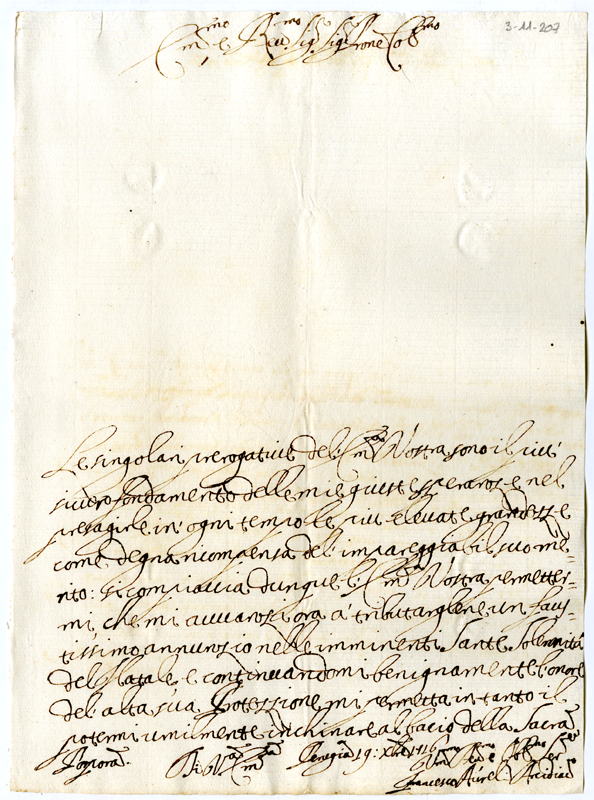 3-11-207
Em.mo e Rev.mo Sig.r Sig.r Prone Col.mo
Le singolari prerogative dell' Em.za Vostra sono il più
sicuro fondamento delle mie giuste speranze nel
presagirle in ogni tempo le più elevate grandezze
come degna ricompensa del impareggiabil suo me=
rito: si compiaccia dunque l' Em.za Vostra permetter=
mi, che mi avvanzi ora a' tributarglene un faus=
tissimo annunzio nelle imminenti Sante Solennità
del Natale, e continuandomi benignamente l'onore
del' alta sua Protessione mi permetta intanto il
potermi umilmente inchinare al bacio della Sacra
Porpora.
Di V.ra Em.za Venezia 19: Xbre 1716
Francesco Aurel